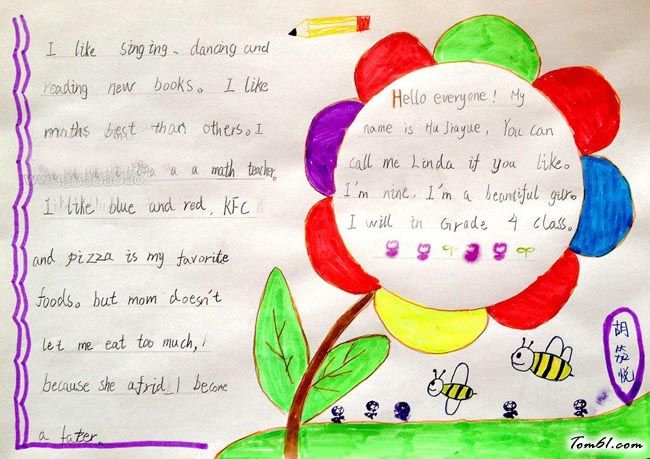 I like singing、dancing and
reading new books。 I like
maths best than others。I
a a math teacher.
I like blue and red, KFC
and pizza is my favorite
foods。but mom doesn't
let me eat too much,
because she afrid I become
a fater.
Hello everyone! My
name is Hu Jiayue, You can
call me Linda if you like。
I'm nine, I'm a beautiful gilr。
I will in Grade 4 class。
胡
悦
Tom61.com